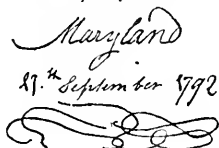 Maryland
September 1792